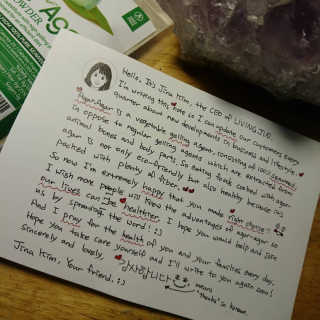 POWDER
AGAR
Hello, It's Jina Kim, the CEO of LIVING JIN.
I'm writing this note so I can update our customers every
quarter about new developments in business and lifestyle.
Agar-agar is a vegetable gelling agent, consisting of 100% seaweed,
in oppose to regular gelling agents which are extracted from
animal bones and body parts. So eating food cooked with agar-
agar is not only eco-friendly but also healthy because it's
packed with plenty of fiber.
So now I'm extremely happy that you made right choice :)
I wish more people will know the advantages of agar-agar so
our lives can be healthier. I hope you would help
us by spreading the word! :)
And I pray for the health of you and your families every day.
Hope you take care yourself and I'll write to you again soon!
sincerely and lovely,
감사합니다 means
"thanks" in Korean
Jina Kim, Your friend. :)